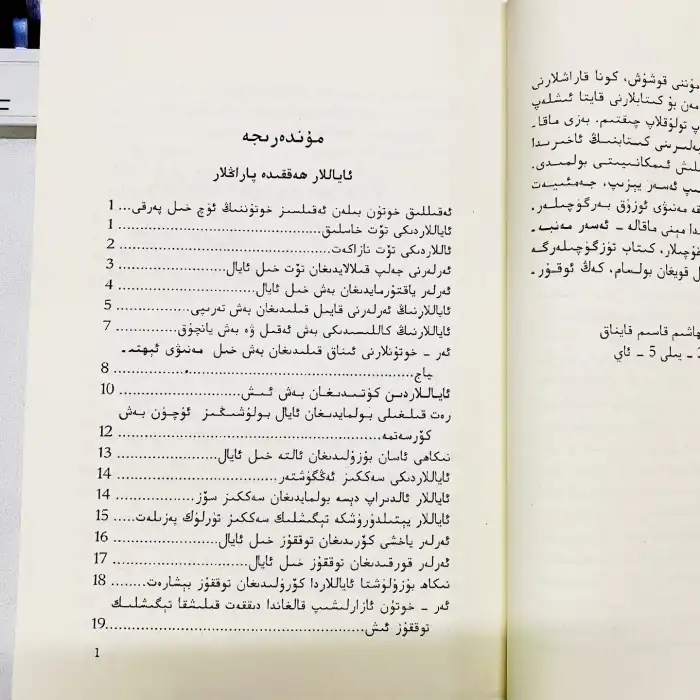 مۇندەرىجە
ئاياللار ھەققىدە پاراڭلار
ئەقىللىق خوتۇن بىلەن ئەقىلسىز خوتۇننىڭ ئۈچ خىل پەرقى... 1
ئاياللاردىكى تۆت خاسلىق ........ 1
ئاللاردىكى تۆت نازاكەت ........ 2
ئەرلەرنى جەلپ قىلالايدىغان تۆت خىل ئايال ........ 3
ئەرلەر ياقتۇرمايدىغان بەش خىل ئايال ........ 4
ئاياللارنىڭ ئەرلەرنى قايىل قىلىدىغان بەش تەرىپى ........ 5
ئاياللارنىڭ كاللىسىدىكى بەش ئەقىل ۋە بەش يانچۇق ........ 7
ئەر - خوتۇنلارنى ئىناق قىلىدىغان بەش خىل مەنىۋى ئېھتى-
ياج ........ 8
ئاياللاردىن كۈتىدىغان بەش ئىش ........ 10
رەت قىلغىلى بولمايدىغان ئايال بولۇشىڭىز ئۈچۈن بەش
كۆرسەتمە ........ 12
نىكاھى ئاسان بۇزۇلىدىغان ئالتە خىل ئايال ........ 13
ئاياللاردىكى سەككىز ئەڭگۈشتەر ........ 14
ئاياللار ئالدىراپ دېسە بولمايدىغان سەككىز سۆز ........ 14
ئاياللار يېتىلدۈرۈشكە تېگىشلىك سەككىز تۈرلۈك پەزىلەت ..... 15
ئەرلەر ياخشى كۆرىدىغان توققۇز خىل ئايال ........ 16
ئەرلەر قورقىدىغان توققۇز خىل ئايال ........ 17
نىكاھ بۇزۇلۇشتا ئاياللاردا كۆرۈلىدىغان توققۇز بېشارەت ........ 18
ئەر - خوتۇن ئازارلىشىپ قالغاندا دىققەت قىلىشقا تېگىشلىك
توققۇز ئىش ........ 19
1
قوشۇش، كونا قاراشلارنى
بۇ كىتابلارنى قايتا ئىشلەپ
تولۇقلاپ چىقتىم. بەزى ماقا-
كىتابنىڭ ئاخىرىدا
ئىمكانىيىتى بولمىدى.
ئەسەر يېزىپ، جەمئىيەت
مەنىۋى ئوزۇق بەرگۈچىلەر.
مېنى ماقالە - ئەسەر مەنبە-
كىتاب تۈزگۈچىلەرگە
قويغان بولسام، كەڭ ئوقۇر-
ھاشىم قاسىم قايناق
- يىلى 5 - ئاي